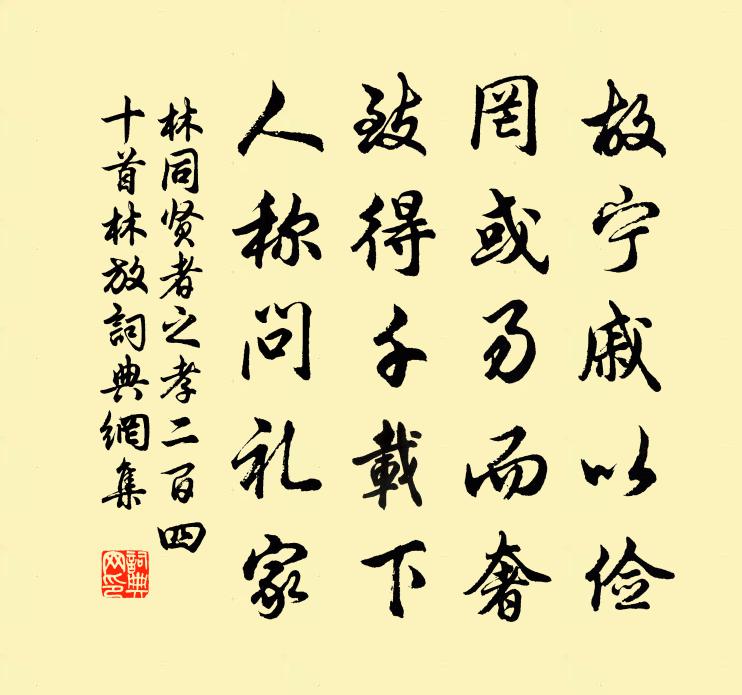 故宁戚以俭
罔或易而奢
致得千载下
人称问礼家
林同贤者之孝二百四
十首林放詞典網集
詞典網印